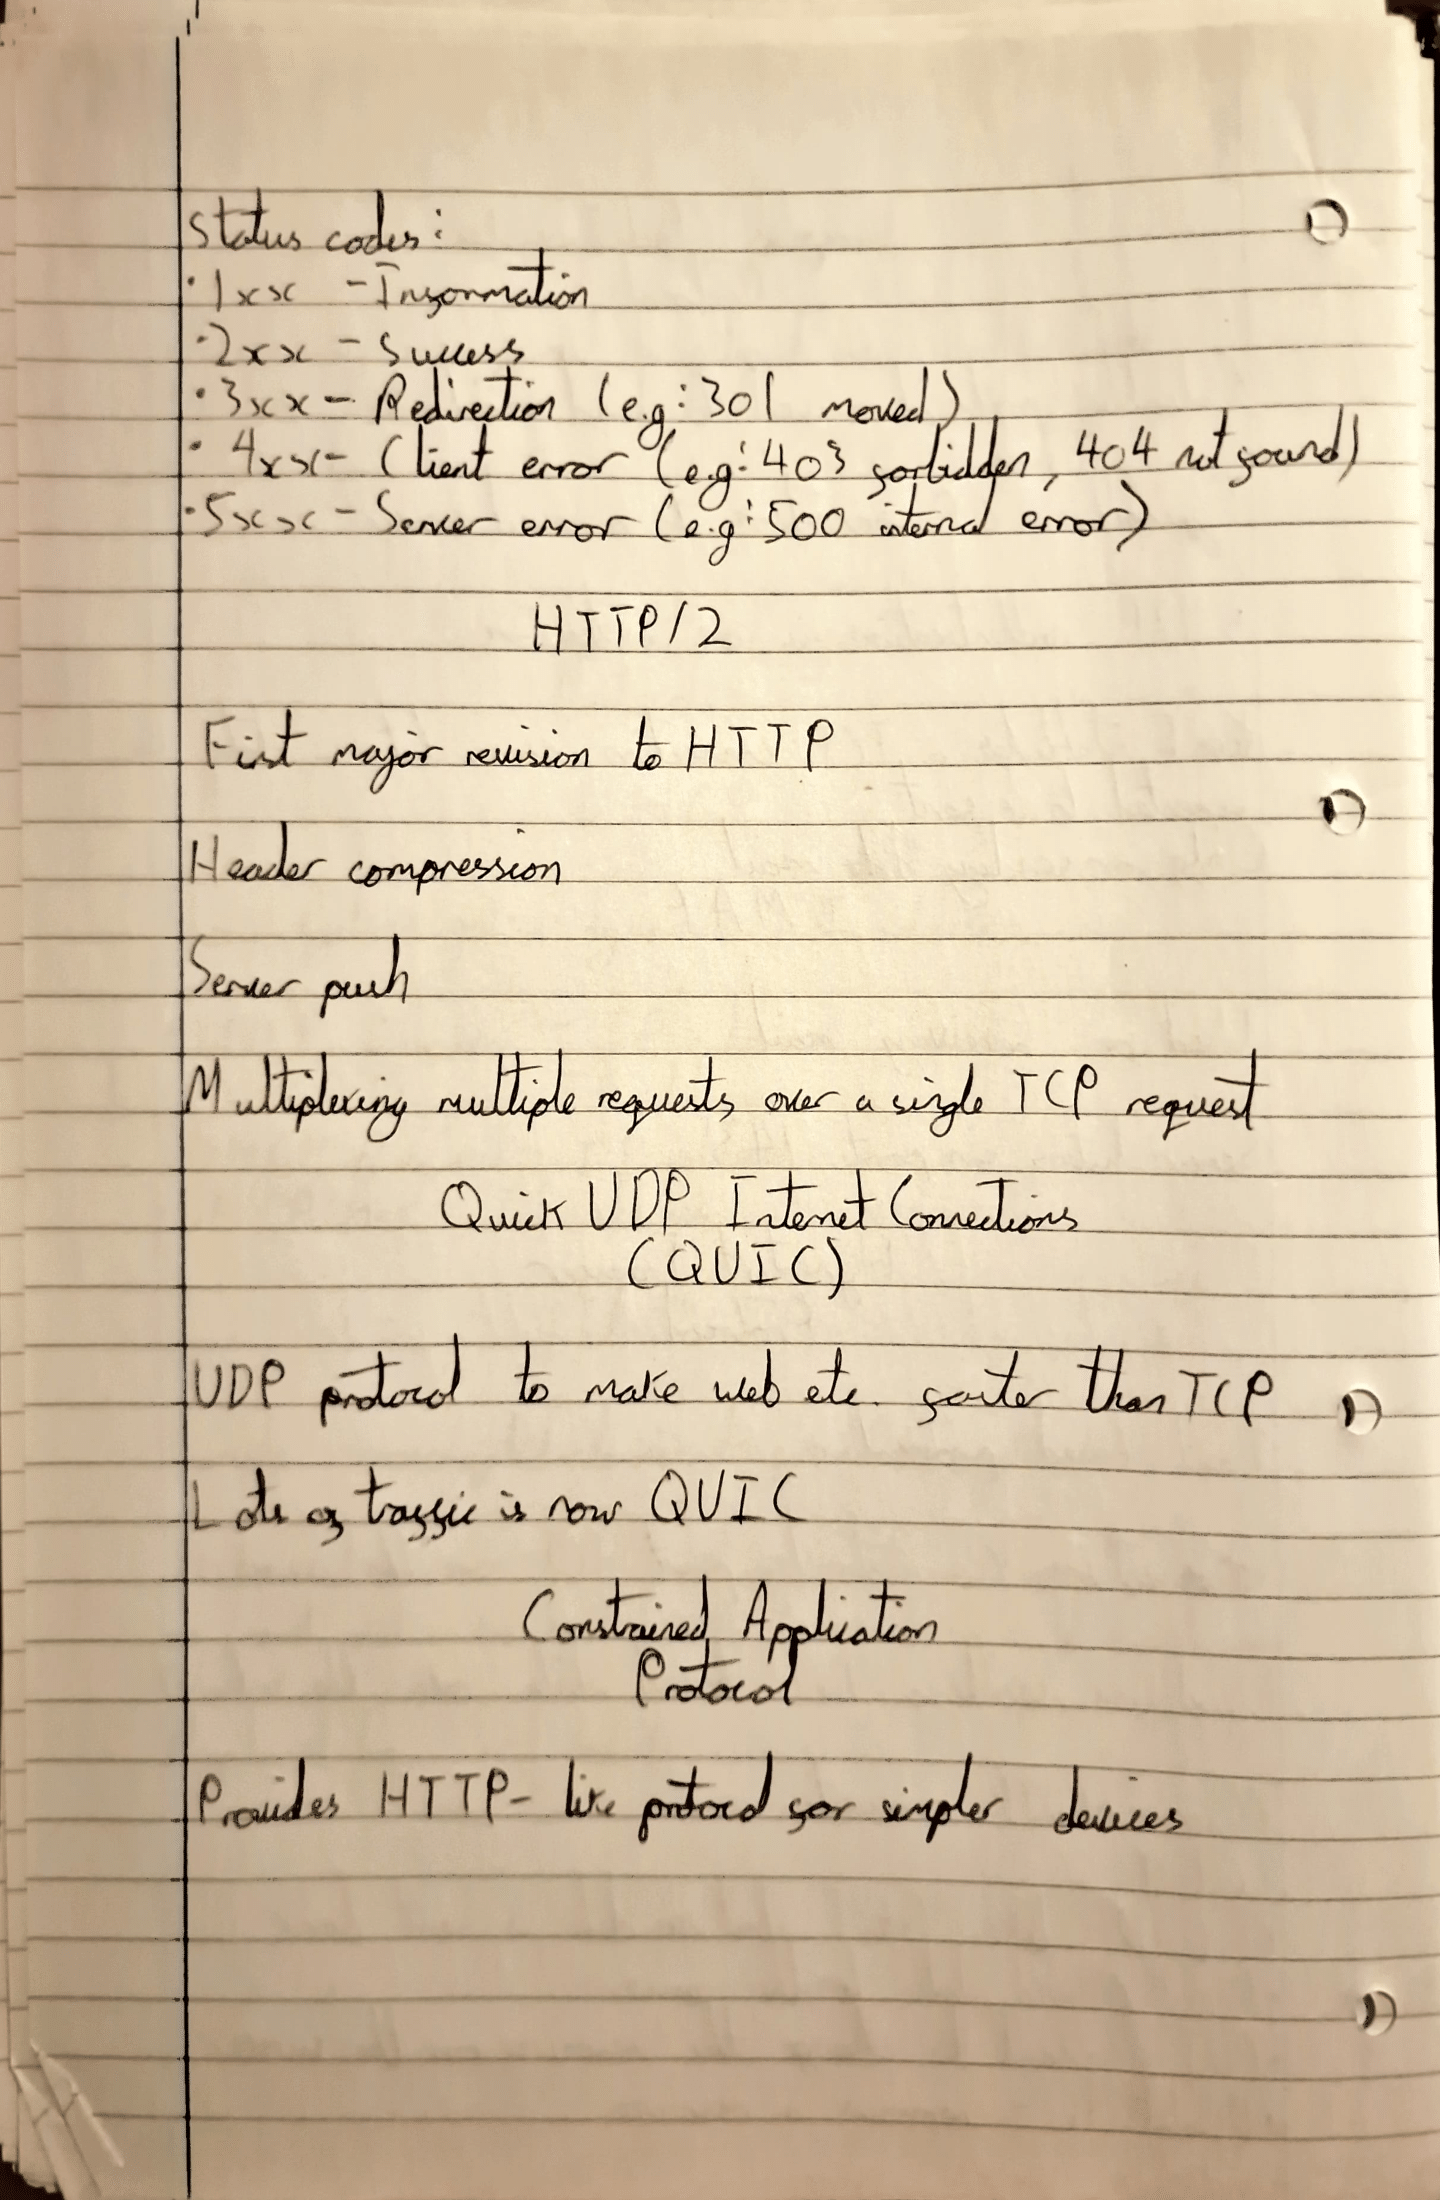 Status codes:
· 1xx - Information
· 2xx - Success
· 3xx - Redirection (e.g: 301 moved)
· 4xx - Client error (e.g: 403 forbidden, 404 not found)
· 5xx - Server error (e.g: 500 internal error)
HTTP/2
First major revision to HTTP
Header compression
Server push
Multiplexing multiple requests over a single TCP request
Quick UDP Internet Connections
(QUIC)
UDP protocol to make web etc. faster than TCP
Lots of traffic is now QUIC
Constrained Application
Protocol
Provides HTTP-like protocol for simpler devices